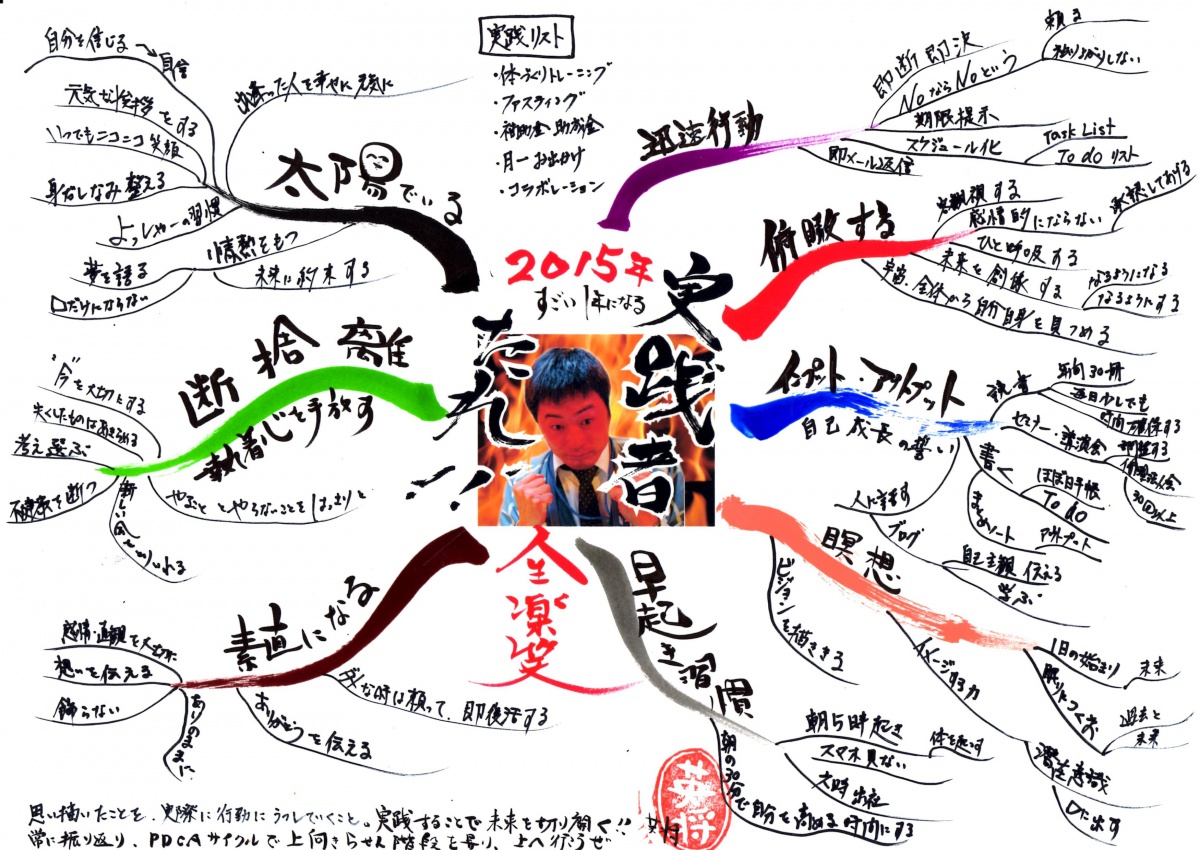 実践リスト
・体づくりトレーニング
・ファスティング
・補助金 助成金
・月一お出かけ
・コラボレーション
2015年
すごい1年になる
実践者
たれ!!
全楽笑
太陽でいる
自分を信じる→自信
出会った人を幸せに元気に
元気な挨拶をする
いつでもニコニコ笑顔
身だしなみ整える
よっしゃーの習慣
情熱をもつ
夢を語る
口だけにならない
未来に約束する
断捨離
執着心を手放す
"今"を大切にする
考え選ぶ
新しい風をとりいれる
やること とやらないことをはっきりと
素直になる
感情・直観を大切に
想いを伝える
飾らない
ありのままに
ありがとうを伝える
ダメな時は頼って、即復活する
迅速行動
即断即決
NoならNoという
頼る
期限提示
スケジュール化
Task List
To do リスト
即メール返信
俯瞰する
客観視する
感情的にならない
承認してあげる
ひと呼吸する
未来を創像する
なるようになる
なるようにする
宇宙、全体から自分自身を見つめる
インプット・アウトプット
自己成長の誓い
読書
年間30冊
毎日少しでも
時間確保する
セミナー・講演会
30回以上
書く
ほぼ日手帳
To do
まとめノート
アウトプット
人に話す
ブログ
自己主観 伝える
学ぶ
瞑想
ビジョンを描ききる
イメージする力
1日の始まり
未来
眠りにつく前
過去と
未来
潜在意識
口に出す
早起き習慣
朝5時起き
体を起す
スマホ見ない
六時出社
朝の30分で自分を高める時間にする
英将
思い描いたことを、実際に行動にうつしていくこと。実践することで未来を切り開く!!
常に振り返り、PDCAサイクルで上向きらせん階段を昇り、上へ行こうぜ